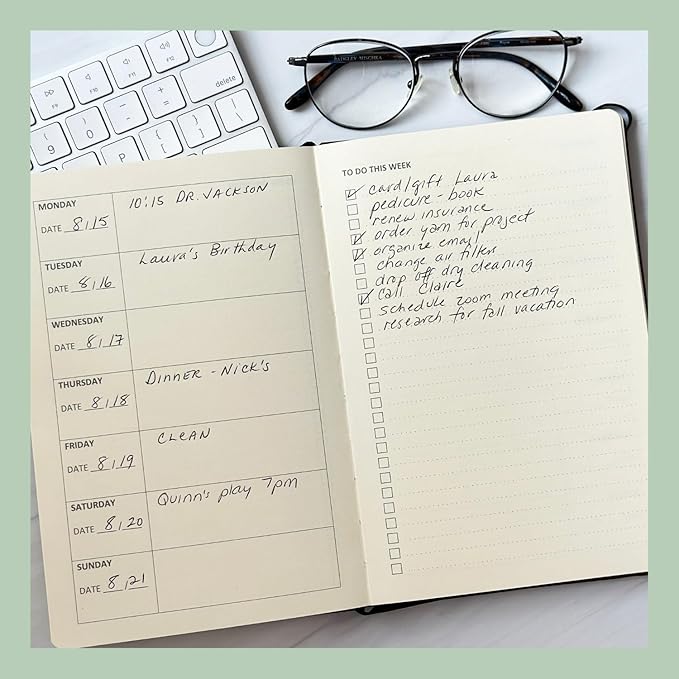 BADGLEY MISCHKA
F9
F10
F11
F12
delete
9
0
MONDAY
DATE 8/15
10:15 DR. JACKSON
TUESDAY
DATE 8/16
Laura's Birthday
WEDNESDAY
DATE 8/17
THURSDAY
DATE 8/18
DINNER - NICK'S
FRIDAY
DATE 8/19
CLEAN
SATURDAY
DATE 8/20
Quinn's play 7pm
SUNDAY
DATE 8/21
TO DO THIS WEEK
card/gift Laura
pedicure - book
renew insurance
order yarn for project
organize email
change air filters
drop off dry cleaning
call Claire
schedule zoom meeting
research for fall vacation